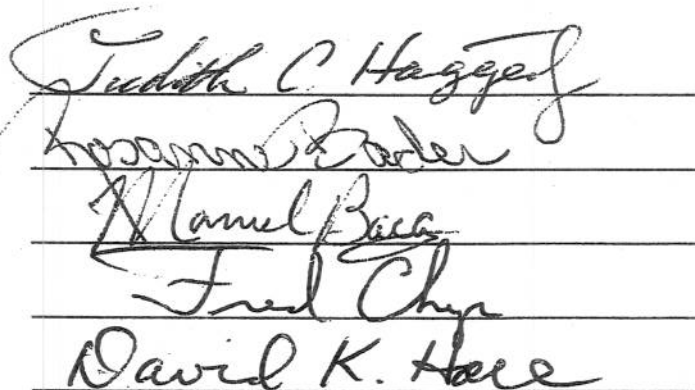 Judith C Haggerty
Rosanne Bader
Manuel Baca
Fred Chyr
David K. Hall